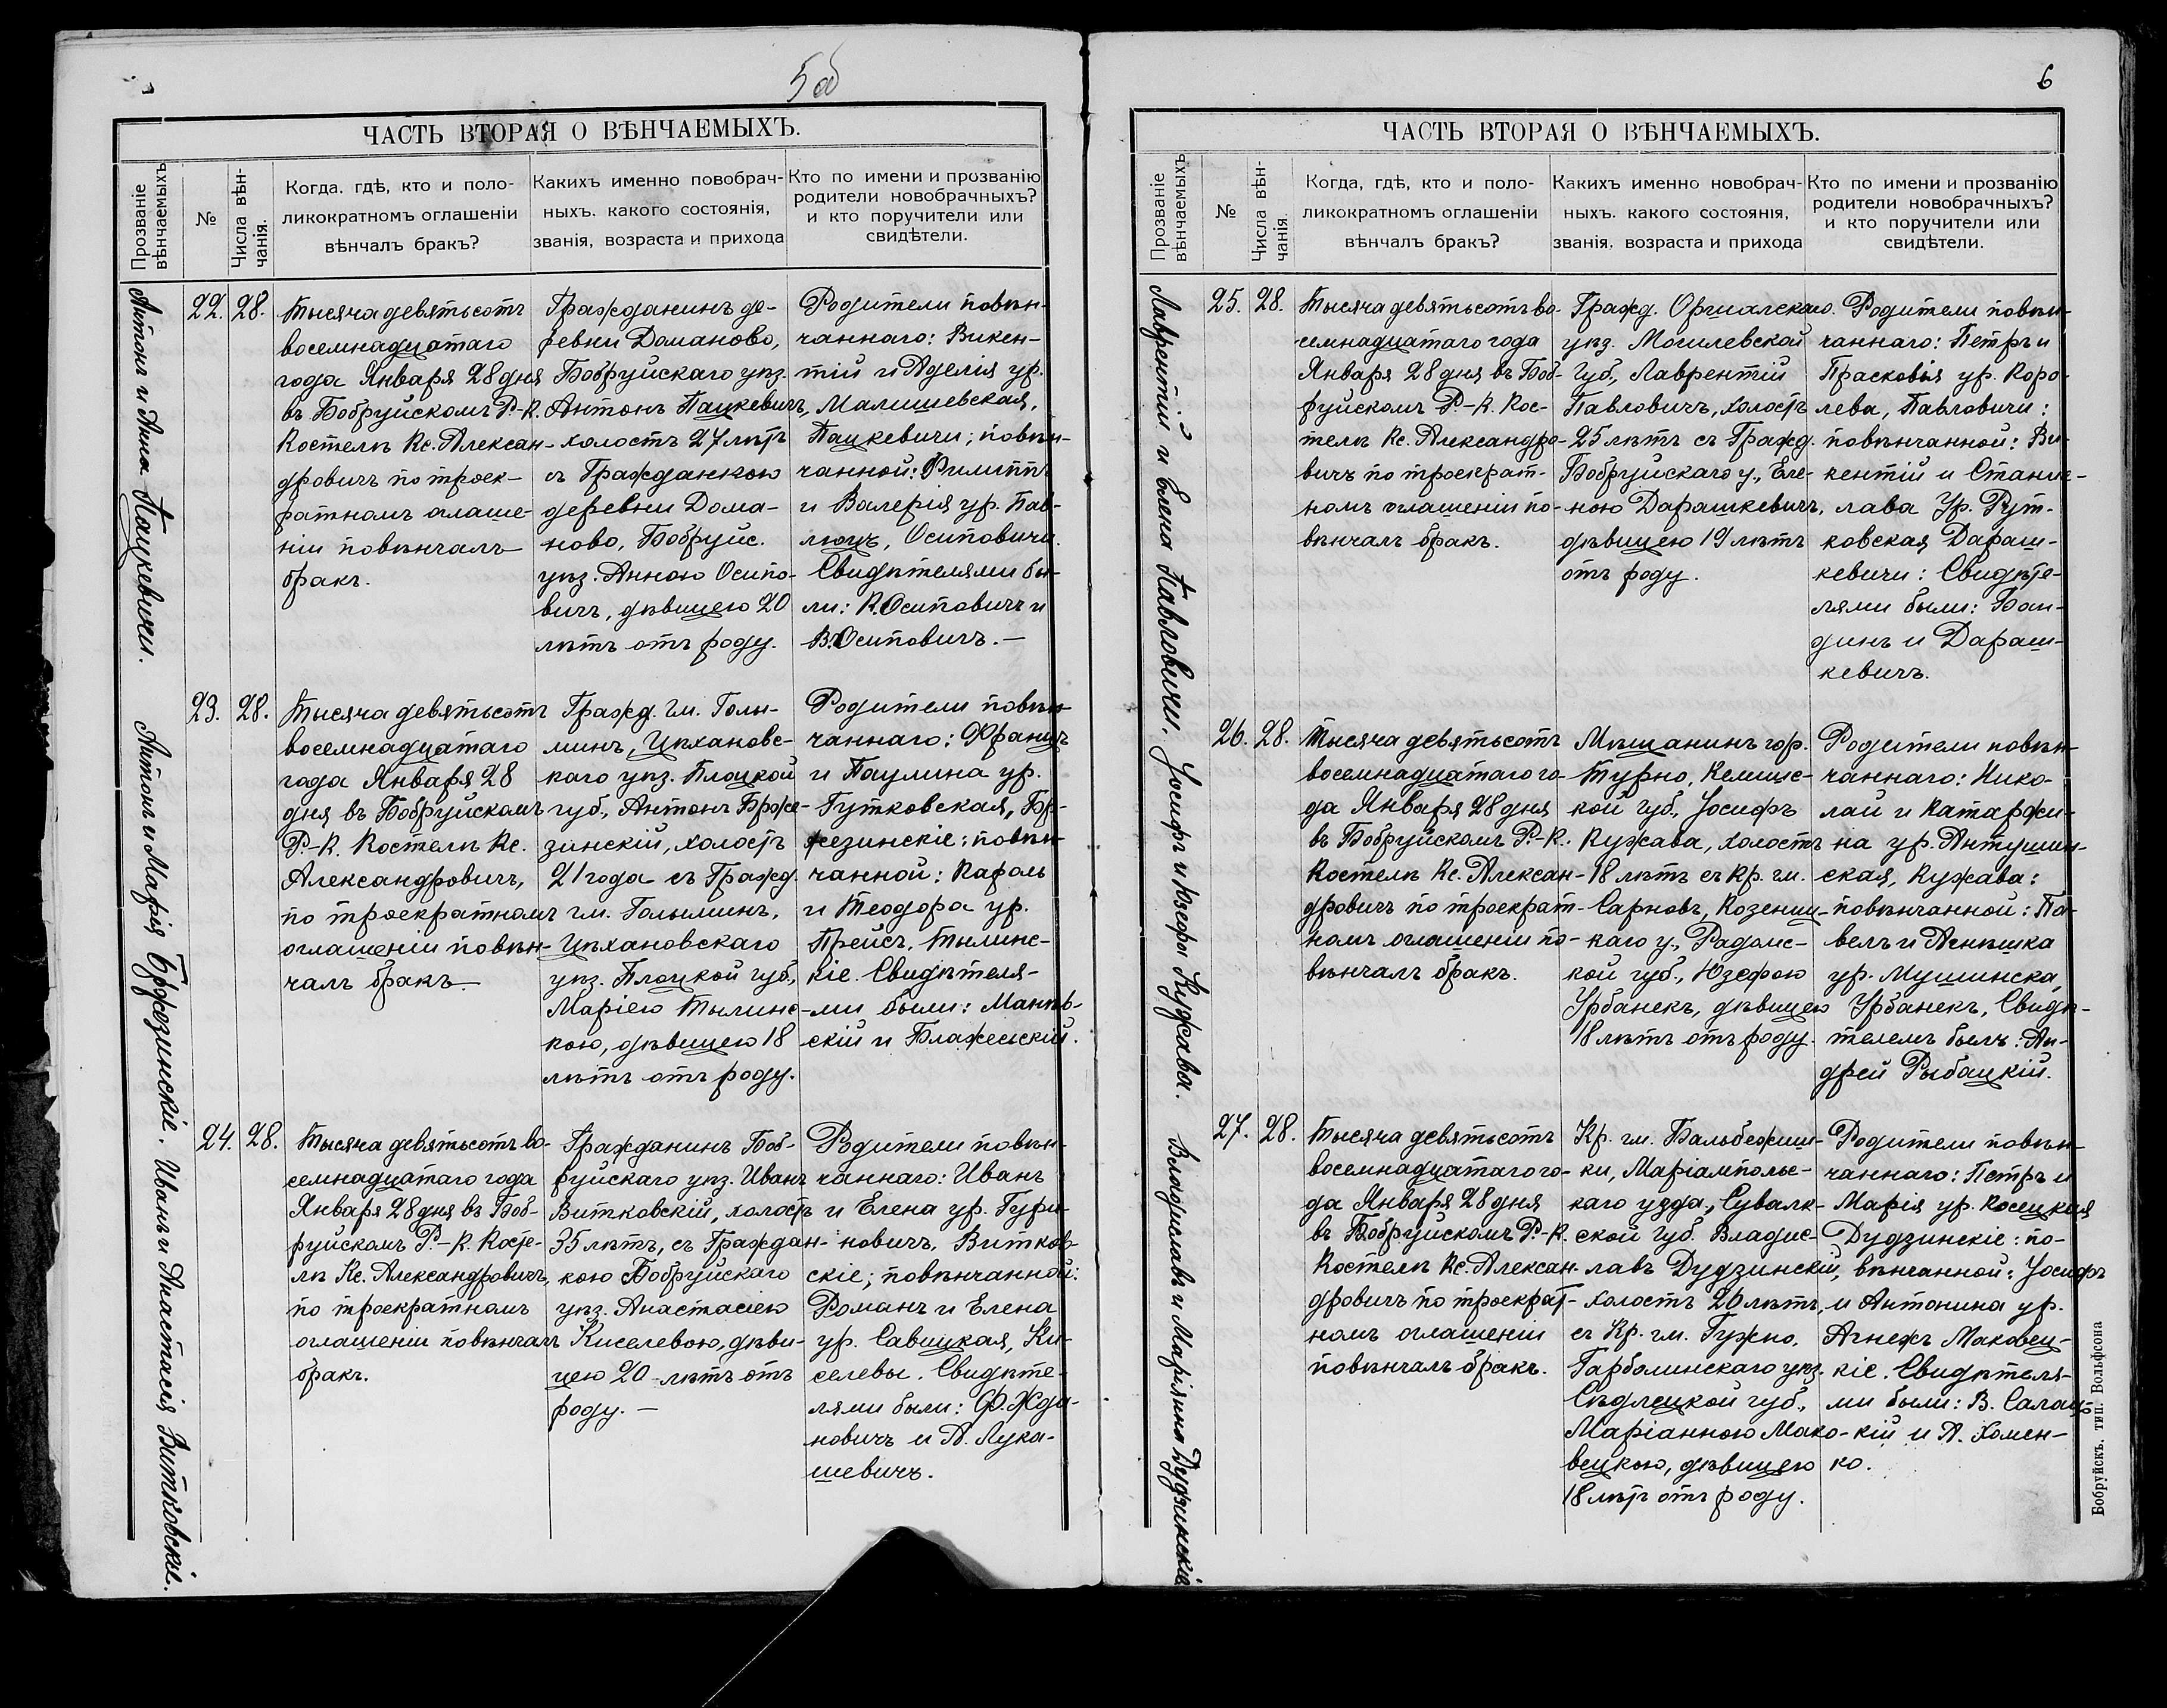 5об
ЧАСТЬ ВТОРАЯ О ВѢНЧАЕМЫХЪ.
Прозваніе
вѣнчаемыхъ
№
Числа вѣн-
чанія.
Когда. гдѣ, кто и поло-
ликократномъ оглашеніи
вѣнчалъ бракъ?
Какихъ именно повобрач-
ныхъ. какого состоянія,
званія, возраста и прихода
Кто по имени и прозванію
родители новобрачныхъ?
и кто поручители или
свидѣтели.
Антонъ и Анна Пацкевичи.
22.
28.
Тысяча девятьсотъ
восемнадцатаго
года Января 28 дня
въ Бобруйскомъ Р.-К.
Костелѣ Кс. Алексан-
дровичъ по троек-
ратномъ оглаше-
ніи повѣнчалъ
бракъ.
Гражданинъ де-
ревни Доманово,
Бобруйскаго уѣз.
Антонъ Пацкевичъ,
холостъ 27 лѣтъ
съ Гражданкою
деревни Дома-
ново, Бобруйс.
уѣз. Анною Осипо-
вичъ, дѣвицею 20
лѣтъ отъ роду.
Родители повѣн-
чаннаго: Викен-
тій и Аделія ур.
Малишевская,
Пацкевичи; повѣн-
чанной: Филиппъ
и Валерія ур. Пав-
люцъ, Осиповичи.
Свидѣтелями бы-
ли: К. Осиповичъ и
В. Осиповичъ. —
Антонъ и Марія Бржезинскіе.
23.
28.
Тысяча девятьсотъ
восемнадцатаго
года Января 28
дня въ Бобруйскомъ
Р.-К. Костелѣ Кс.
Александровичъ,
по троекратномъ
оглашеніи повѣн-
чалъ бракъ.
Гражд. гм. Голы-
минъ, Цѣхановс-
каго уѣз. Плоцкой
губ., Антонъ Брже-
зинскій, холостъ
21 года съ Гражд.
гм. Голыминъ,
Цѣхановскаго
уѣз. Плоцкой губ.,
Маріею Тылинс-
кою, дѣвицею 18
лѣтъ отъ роду.
Родители повѣн-
чаннаго: Францъ
и Паулина ур.
Гутковская, Бр-
жезинскіе: повѣн-
чанной: Кароль
и Теодора ур.
Прейсъ, Тылинс-
кіе. Свидѣтеля-
ми были: Манѣв-
скій и Блажеьскій.
Иванъ и Анастасія Витковскіе.
24.
28.
Тысяча девятьсотъ во-
семнадцатаго года
Января 28 дня въ Боб-
руйскомъ Р.-К. Косте-
лѣ Кс. Александровичъ,
по троекратномъ
оглашеніи повѣнчалъ
бракъ.
Гражданинъ Боб-
руйскаго уѣз. Иванъ
Витковскій, холостъ
35 лѣтъ, съ Граждан-
кою Бобруйскаго
уѣз. Анастасіею
Киселевою, дѣви-
цею 20 лѣтъ отъ
роду. —
Родители повѣн-
чаннаго: Иванъ
и Елена ур. Гури-
новичъ, Витков-
скіе; повѣнчанной:
Романъ и Елена
ур. Савицкая, Ки-
селевы. Свидѣте-
лями были: Ф. Жда-
новичъ и А. Лука-
шевичъ.
6
ЧАСТЬ ВТОРАЯ О ВѢНЧАЕМЫХЪ.
Прозваніе
вѣнчаемыхъ
№
Числа вѣн-
чанія.
Когда, гдѣ, кто и поло-
ликократномъ оглашеніи
вѣнчалъ бракъ?
Какихъ именно новобрач-
ныхъ. какого состоянія,
званія, возраста и прихода
Кто по имени и прозванію
родители новобрачныхъ?
и кто поручители или
свидѣтели.
Лаврентій и Елена Павловичи.
25.
28.
Тысяча девятьсотъ во-
семнадцатаго года
Января 28 дня въ Боб-
руйскомъ Р.-К. Кос-
телѣ Кс. Александро-
вичъ по троекрат-
номъ оглашеніи по-
вѣнчалъ бракъ.
Гражд. Оршалскаго
уѣз. Могилевской
Губ., Лаврентій
Павловичъ, холостъ
25 лѣтъ съ Гражд.
Бобруйскаго у., Еле-
ною Дарашкевичъ,
дѣвицею 19 лѣтъ
отъ роду.
Родители повѣн-
чаннаго: Петръ и
Прасковія ур. Коро-
лева, Павловичи:
повѣнчанной: Ви-
кентій и Станис-
лава Ур. Рут-
ковская Дараш-
кевичи: Свидѣте-
лями были: Бан-
динъ и Дараш-
кевичъ.
Іосифъ и Юзефи Кужава.
26.
28.
Тысяча девятьсотъ
восемнадцатаго го-
да Января 28 дня
въ Бобруйскомъ Р.-К.
Костелѣ Кс. Алексан-
дровичъ по троекрат-
номъ оглашеніи по-
вѣнчалъ бракъ.
Мѣщанинъ гор.
Турно, Келишс-
кой губ., Іосифъ
Кужава, холостъ
18 лѣтъ съ Кр. гм.
Сарновъ, Козениц-
каго у., Радомс-
кой губ., Юзефою
Урбанекъ, дѣвицею
18 лѣтъ отъ роду.
Родители повѣн-
чаннаго: Нико-
лай и Катаржи-
на ур. Антушин-
ская, Кужава:
повѣнчанной: Па-
велъ и Агнѣшка
ур. Мушинска,
Урбанекъ, Свидѣ-
телемъ былъ: Ан-
дрей Рыбацкій.
Владиславъ и Маріянна Дудзинскіе
27.
28.
Тысяча девятьсотъ
восемнадцатаго го-
да Января 28 дня
въ Бобруйскомъ Р.-К.
Костелѣ Кс. Алексан-
дровичъ по троекрат-
номъ оглашеніи
повѣнчалъ бракъ.
Кр. гм. Бальбежиш-
ки, Маріампольс-
каго уѣзда, Сувалк-
ской губ. Владис-
лавъ Дудзинскій,
холостъ 20 лѣтъ,
съ Кр. гм. Гужно,
Гарболинскаго уѣз.
Сѣдлецкой губ.,
Маріанною Мако-
вецкою, дѣвицею
18 лѣтъ отъ роду.
Родители повѣн-
чаннаго: Петръ и
Марія ур. Косецкая
Дудзинскіе: по-
вѣнчанной: Іосифъ
и Антонина ур.
Агнежъ Маковец-
кіе. Свидѣтеля-
ми были: В. Салац-
кій и А. Хомен-
ко.
Бобруйскъ. тип. Вольфсона